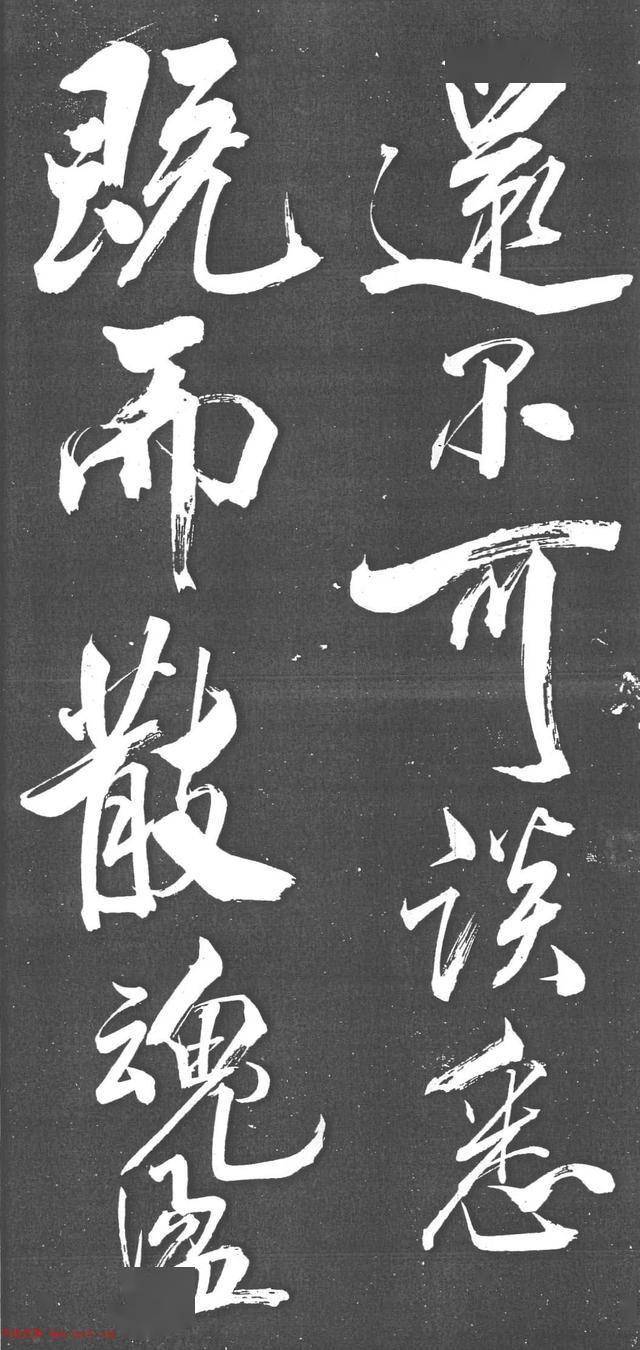 不可談悉
既而散魂